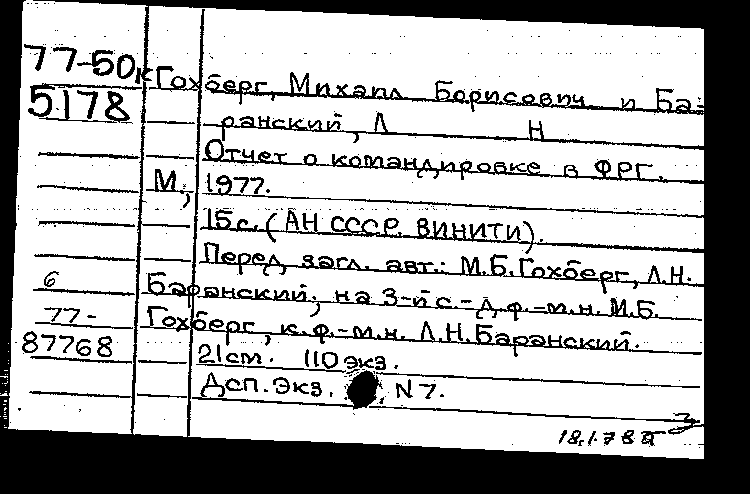 77-50к Гохберг, Михаил Борисович и Ба-
5178 ранский, Л Н
Отчет о командировке в ФРГ.
М., 1977.
15 с. (АН СССР. ВИНИТИ).
Перед загл. авт.: М.Б.Гохберг, Л.Н.
6 Баранский; на 3-й с.-д.ф.-м.н. М.Б.
77- Гохберг, к.ф.-м.н. Л.Н.Баранский.
87768 21 см. 110 экз.
Дсп. Экз. N 7.
18.1.78